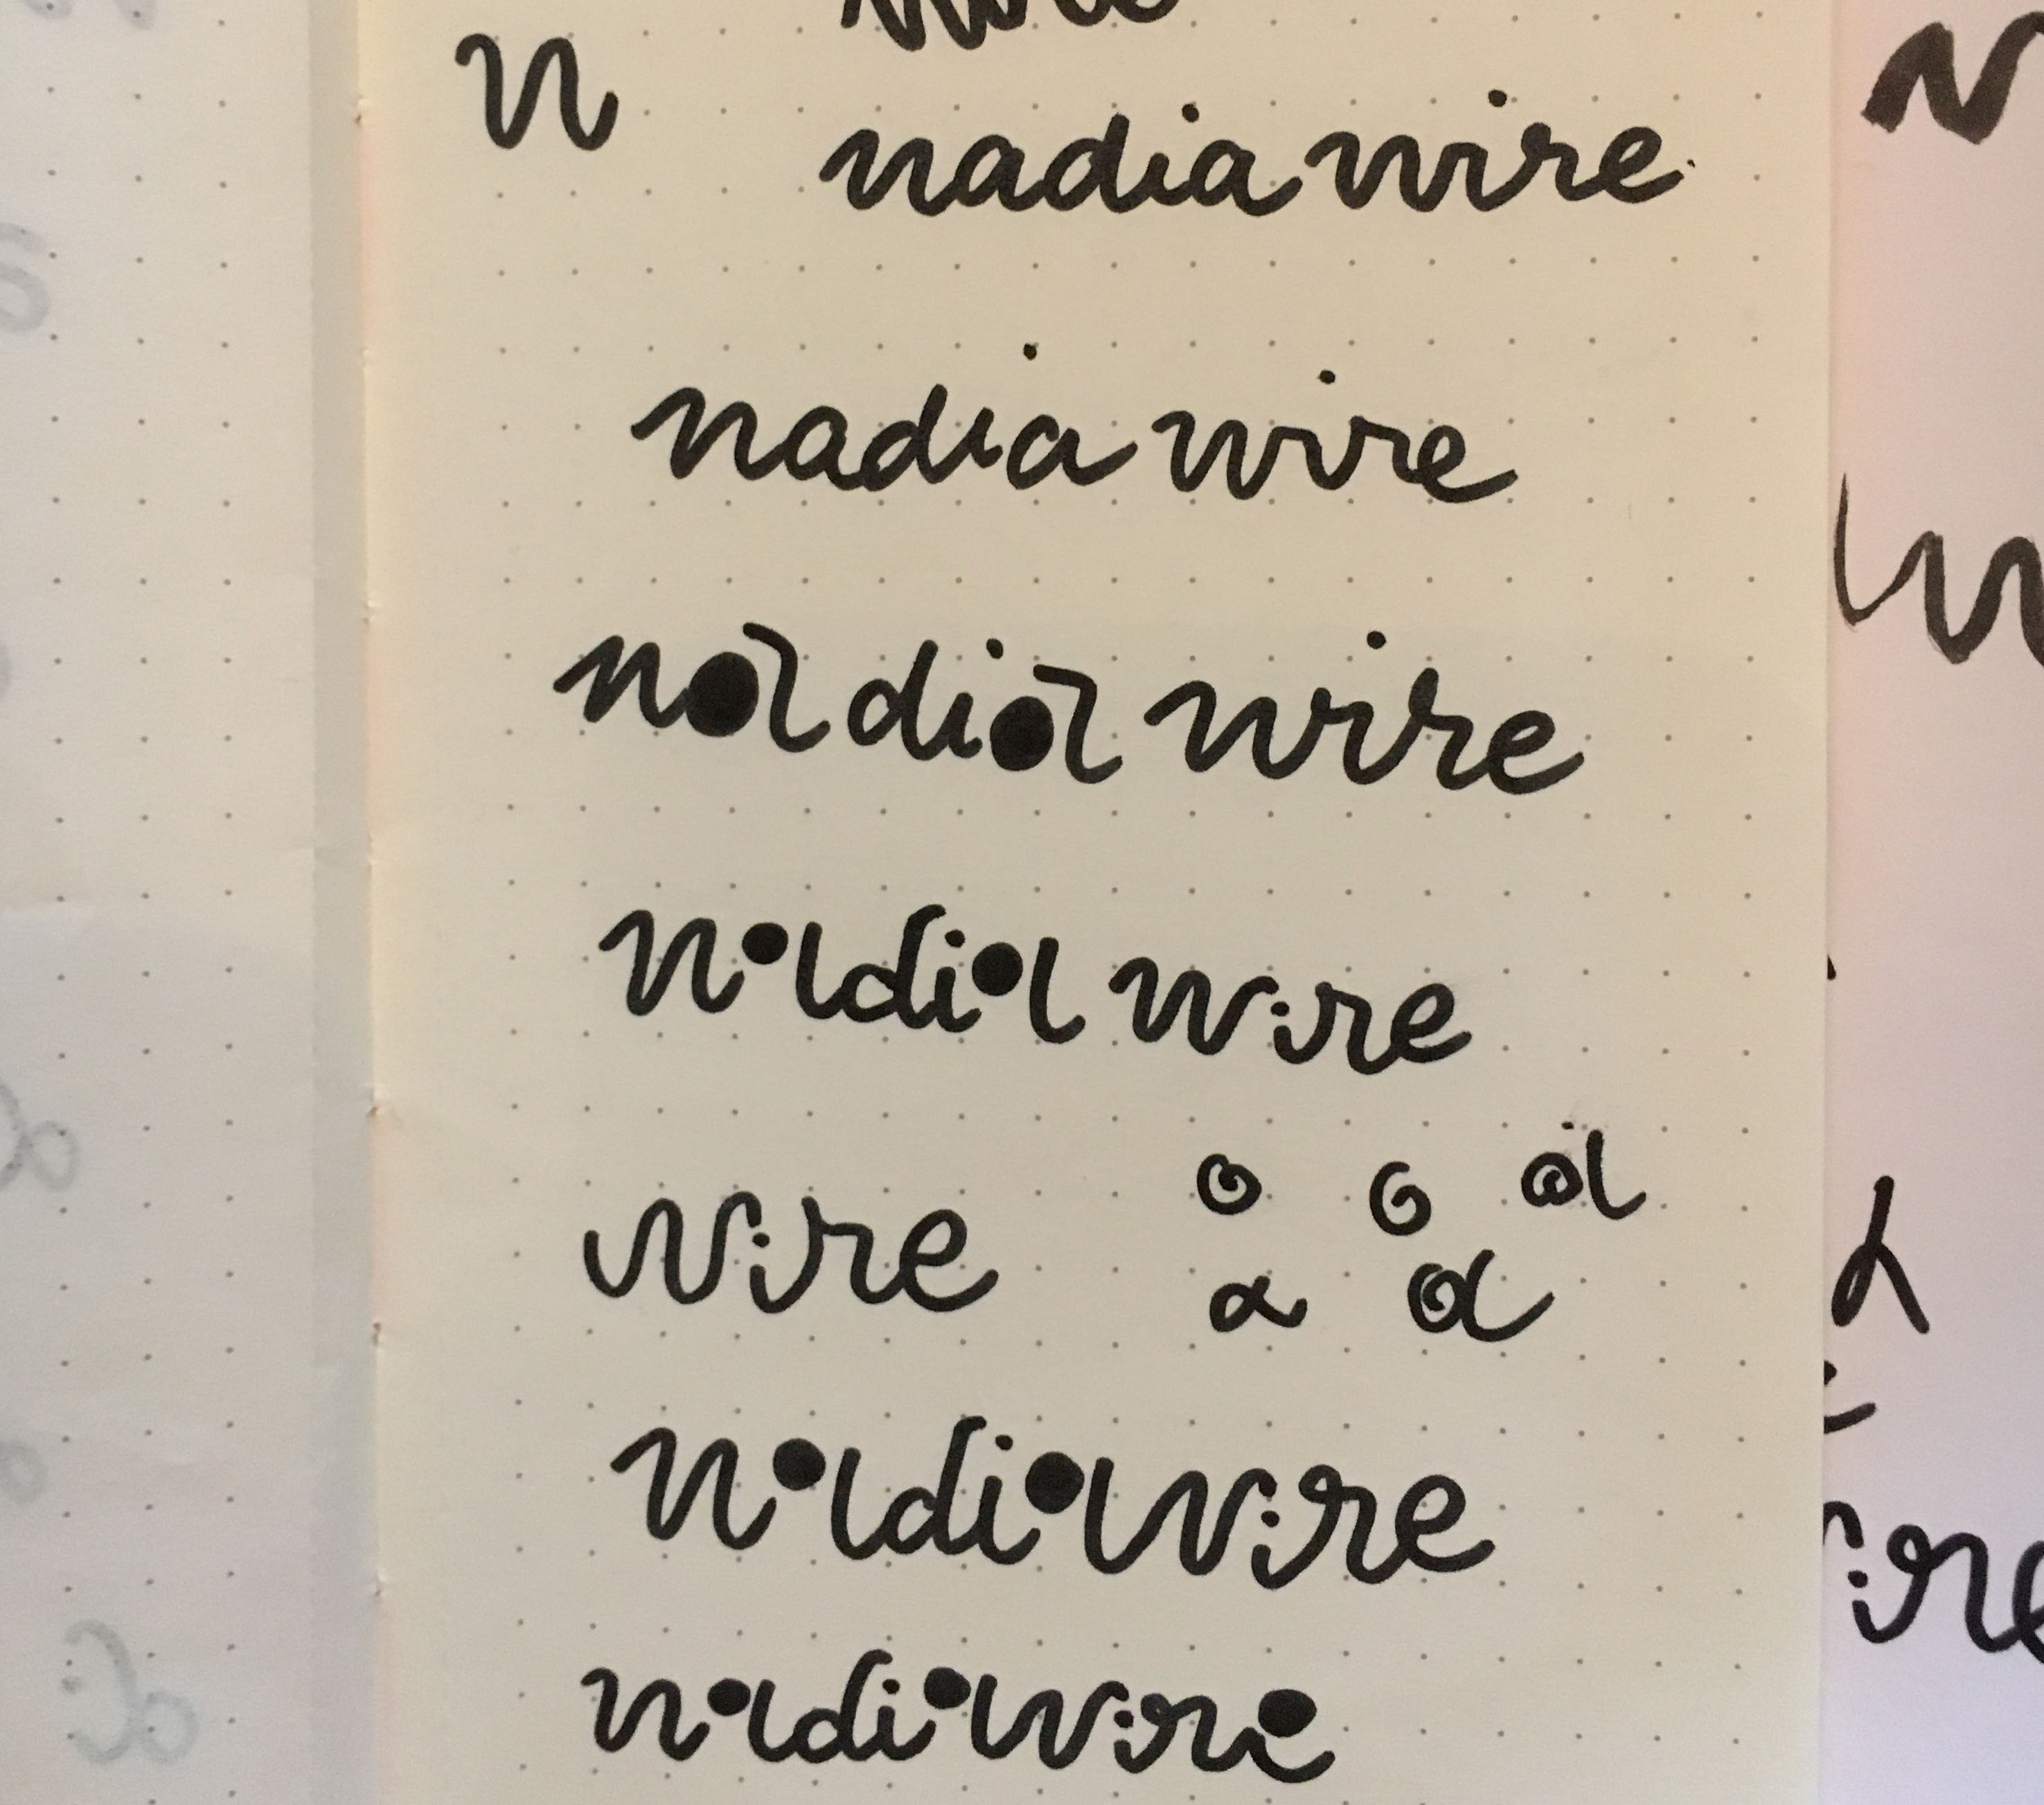 n
nadia wire
nadia wire
nadia wire
nadia wire
wire o o a
a a
nadiawire
nadiawire